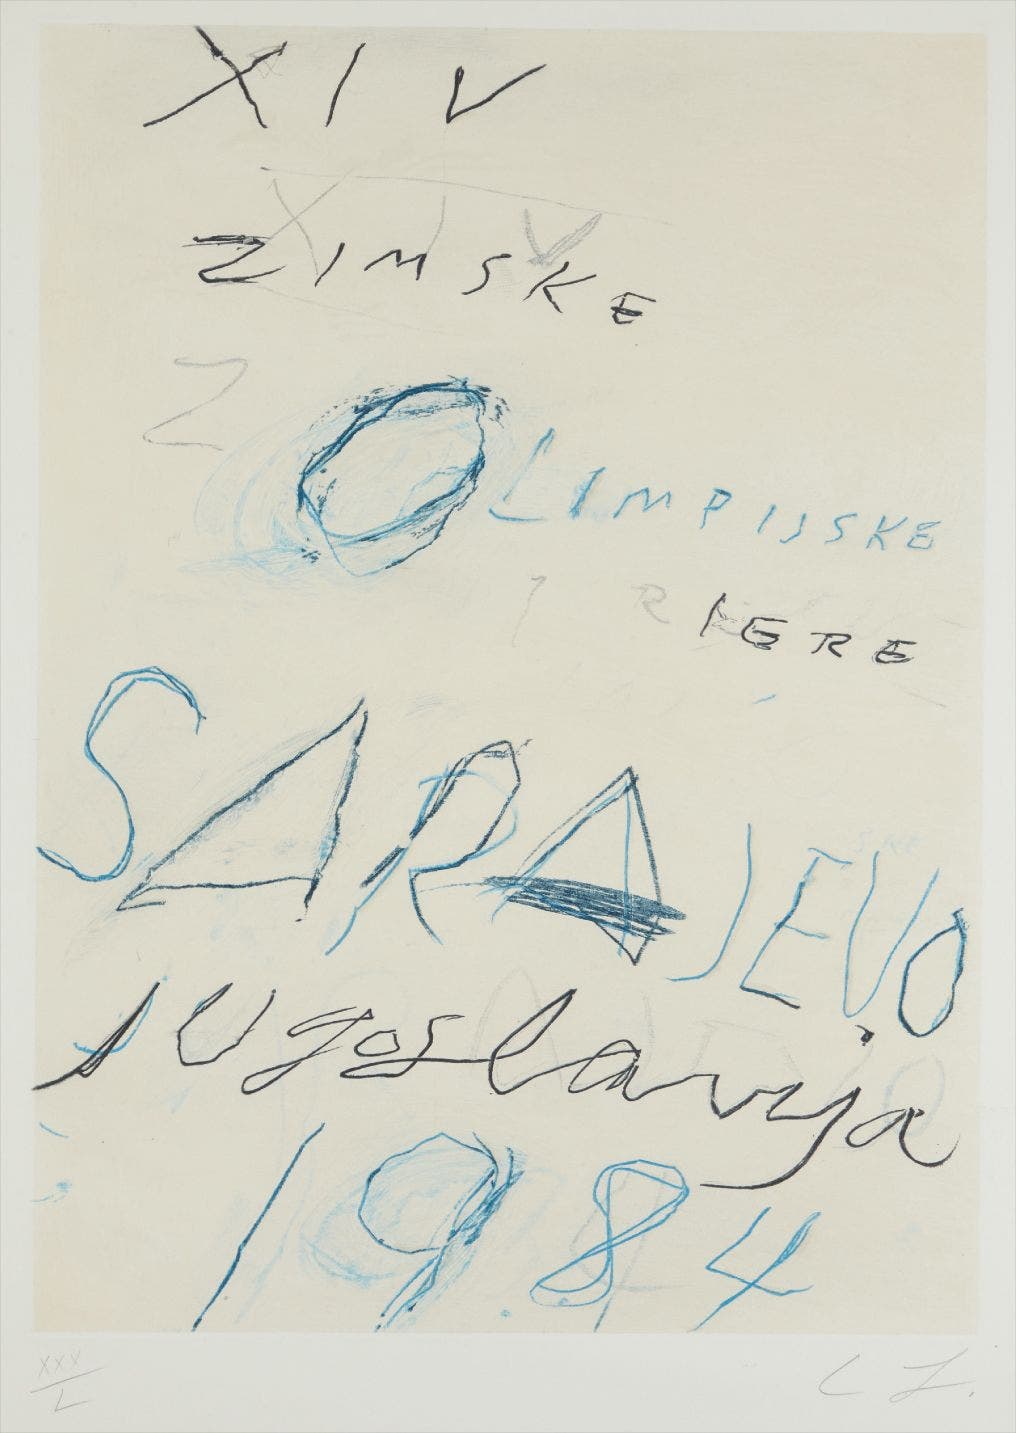 XIV
ZIMSKE
OLIMPIJSKE
IERE
SARAJEVO
Jugoslavija
1984
XXX
L